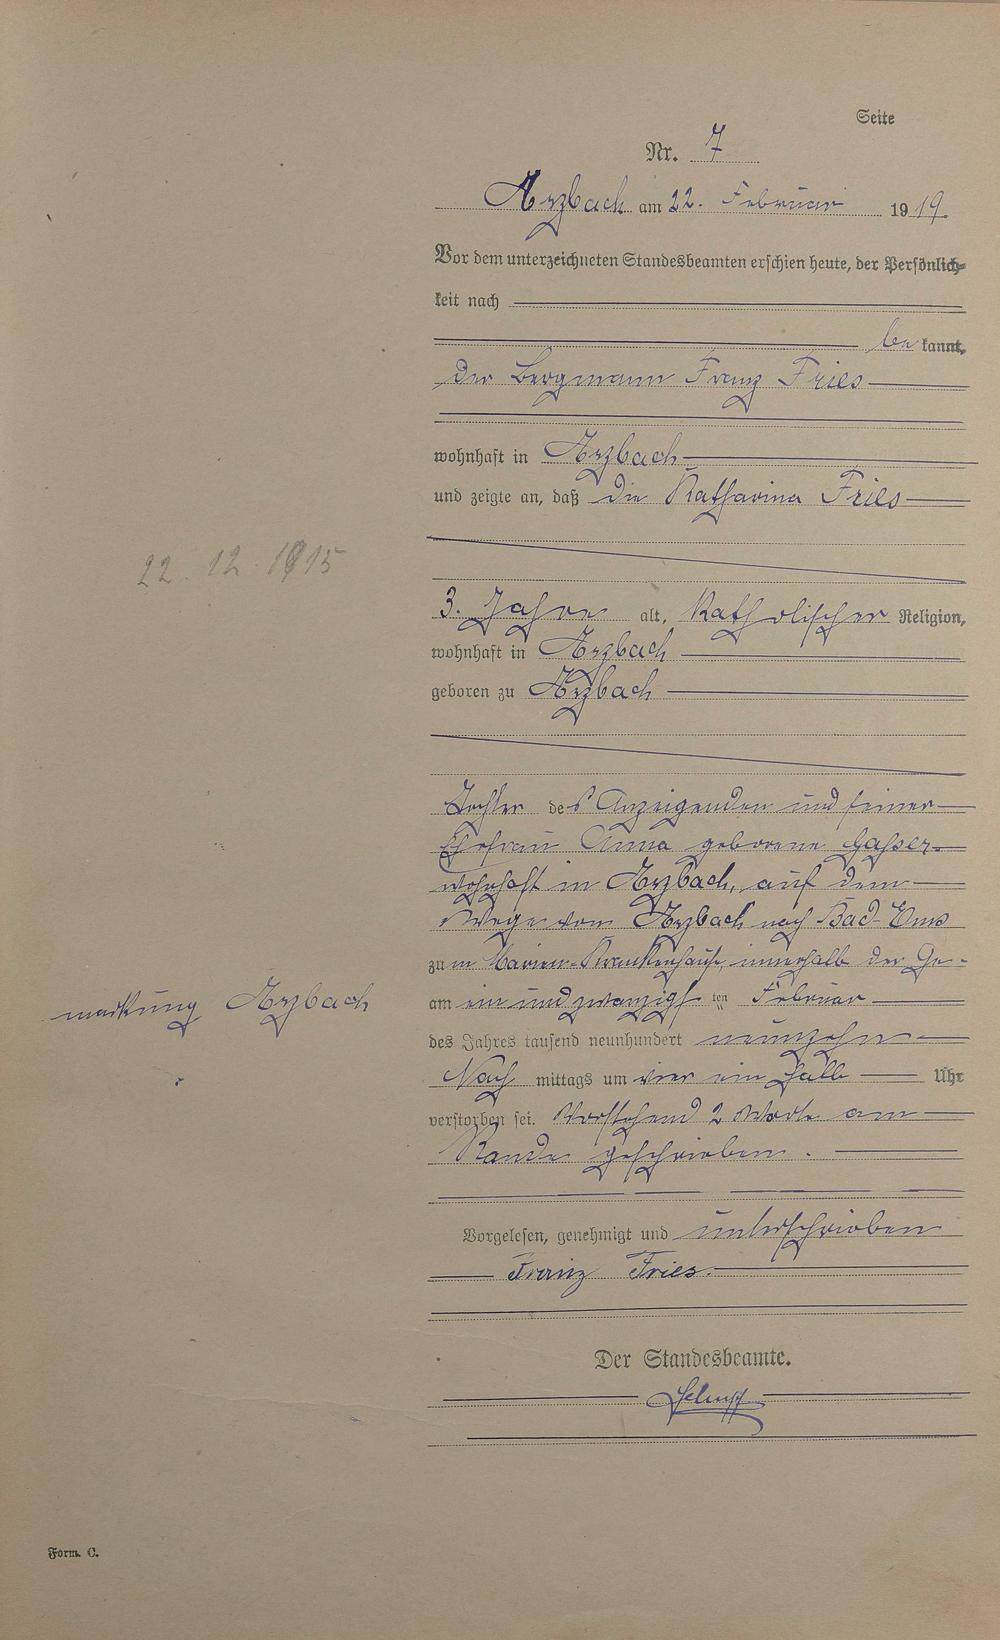 Seite
Nr. 7
Arzbach am 22. Februar 1919.
Vor dem unterzeichneten Standesbeamten erschien heute, der Persönlich=
keit nach
be kannt,
der Bergmann Franz Fries
wohnhaft in Arzbach
und zeigte an, daß die Katharina Fries
22. 12. 1915
3. Jahre alt, Katholischer Religion,
wohnhaft in Arzbach
geboren zu Arzbach
Tochter des Anzeigenden und seiner
Ehefrau Anna geborene
wohnhaft in Arzbach, auf dem
Wege von Arzbach nach Bad-Ems
zu m Marien-Krankenhause, innerhalb der Ge-
markung Arzbach
am ein und zwanzigs ten Februar
des Jahres tausend neunhundert neunzehn
Nach mittags um vier ein halb Uhr
verstorben sei. Vorstehend 2 Worte am
Rande geschrieben.
Vorgelesen, genehmigt und unterschrieben
Franz Fries.
Der Standesbeamte.
Form. C.